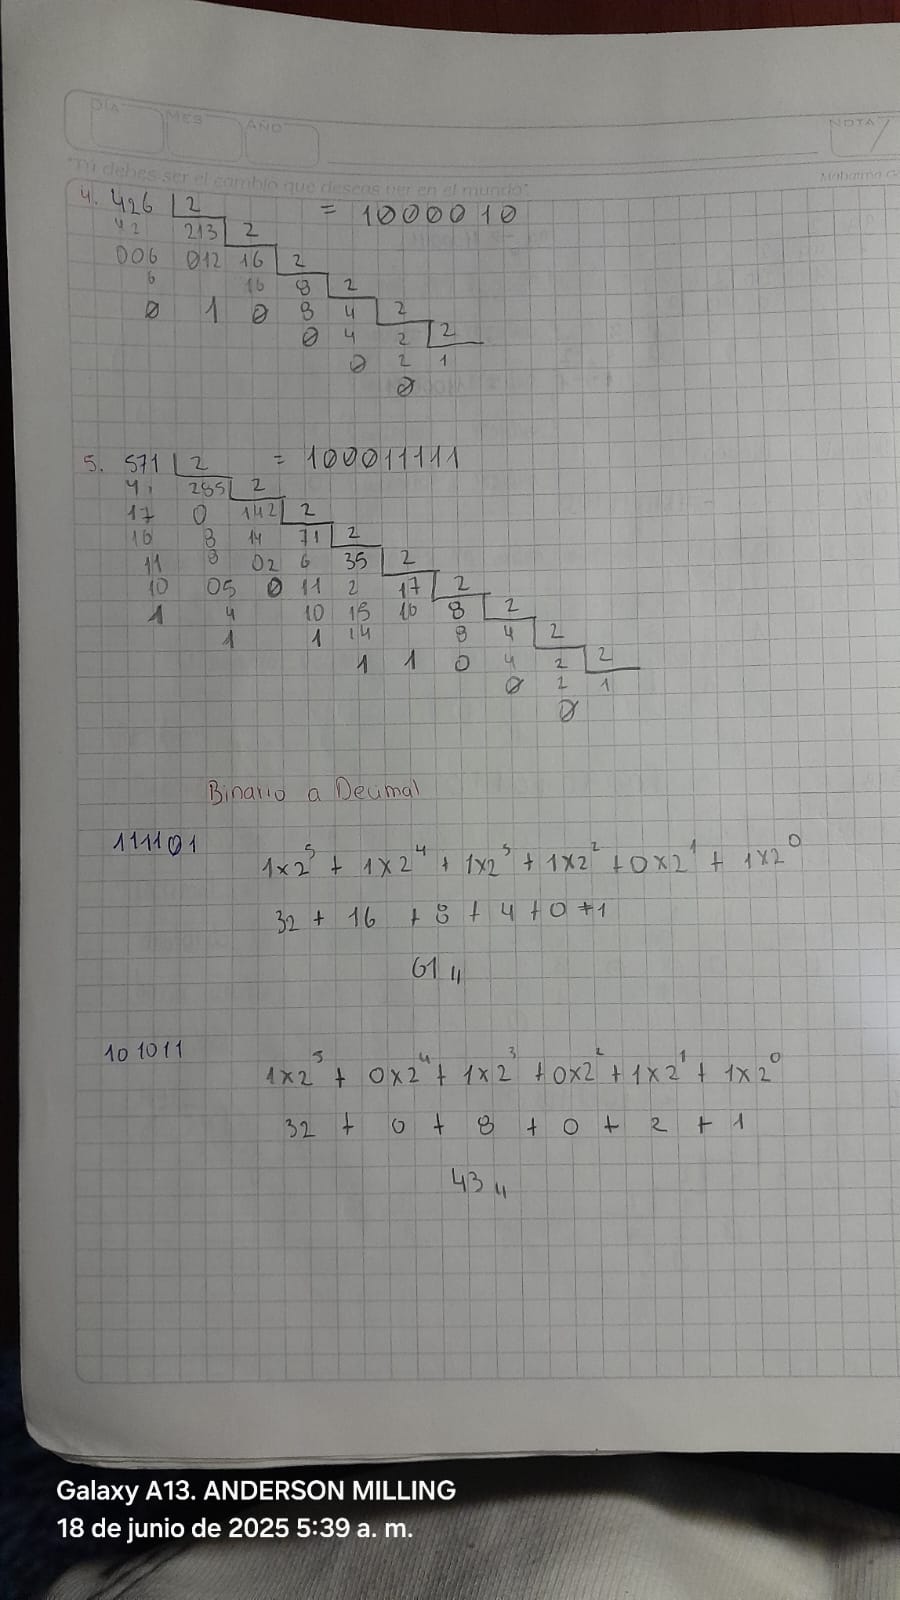 DIA MES AÑO NOTA
"Tú debes ser el cambio que deseas ver en el mundo".
4. 426 2 = 1000010
42 213 2
006 012 16 2
6 16 8 2
0 1 0 8 4 2
0 4 2 2
0 2 1
0
5. 571 2 = 100011111
4 285 2
17 0 142 2
16 8 14 71 2
11 8 02 6 35 2
10 05 0 11 2 17 2
1 4 10 15 16 8 2
1 1 14 8 4 2
1 1 0 4 2 2
0 2 1
0
Binario a Decimal
111101
1x2⁵ + 1x2⁴ + 1x2³ + 1x2² + 0x2¹ + 1x2⁰
32 + 16 + 8 + 4 + 0 + 1
61 "
101011
1x2⁵ + 0x2⁴ + 1x2³ + 0x2² + 1x2¹ + 1x2⁰
32 + 0 + 8 + 0 + 2 + 1
43 "
Galaxy A13. ANDERSON MILLING
18 de junio de 2025 5:39 a. m.